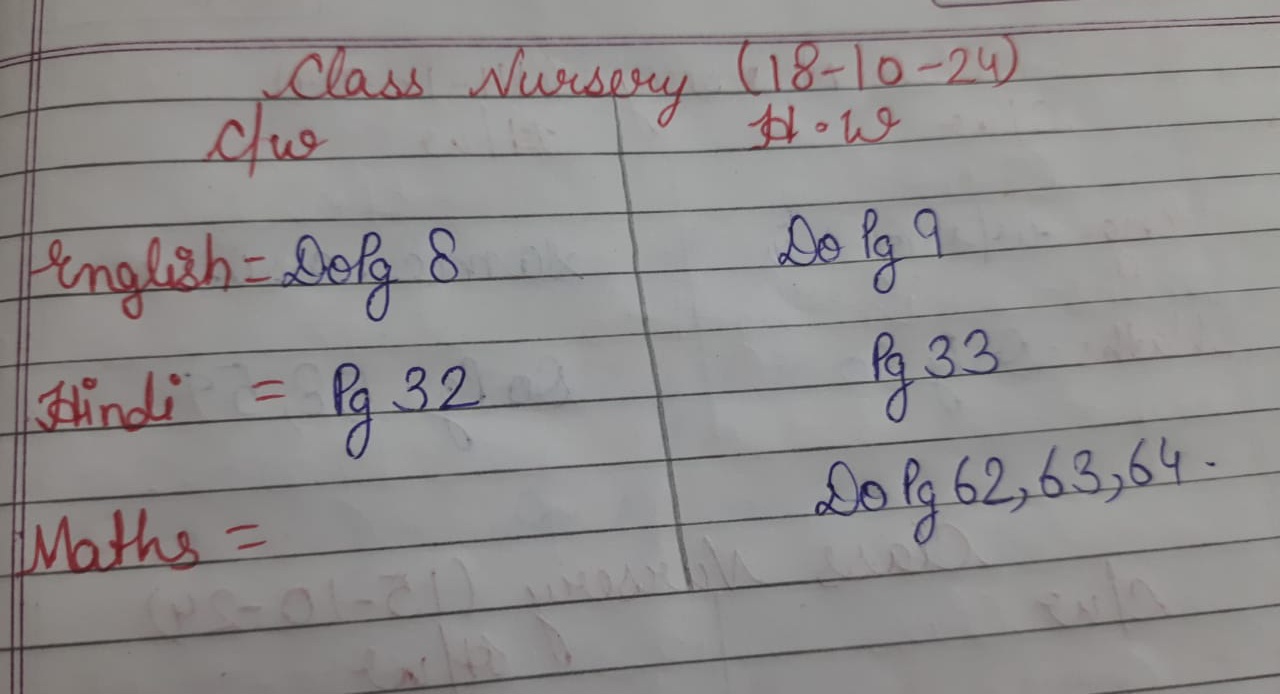 Class Nursery (18-10-24)
C/w H.w
English = Do Pg 8 Do Pg 9
Hindi = Pg 32 Pg 33
Maths = Do Pg 62, 63, 64.